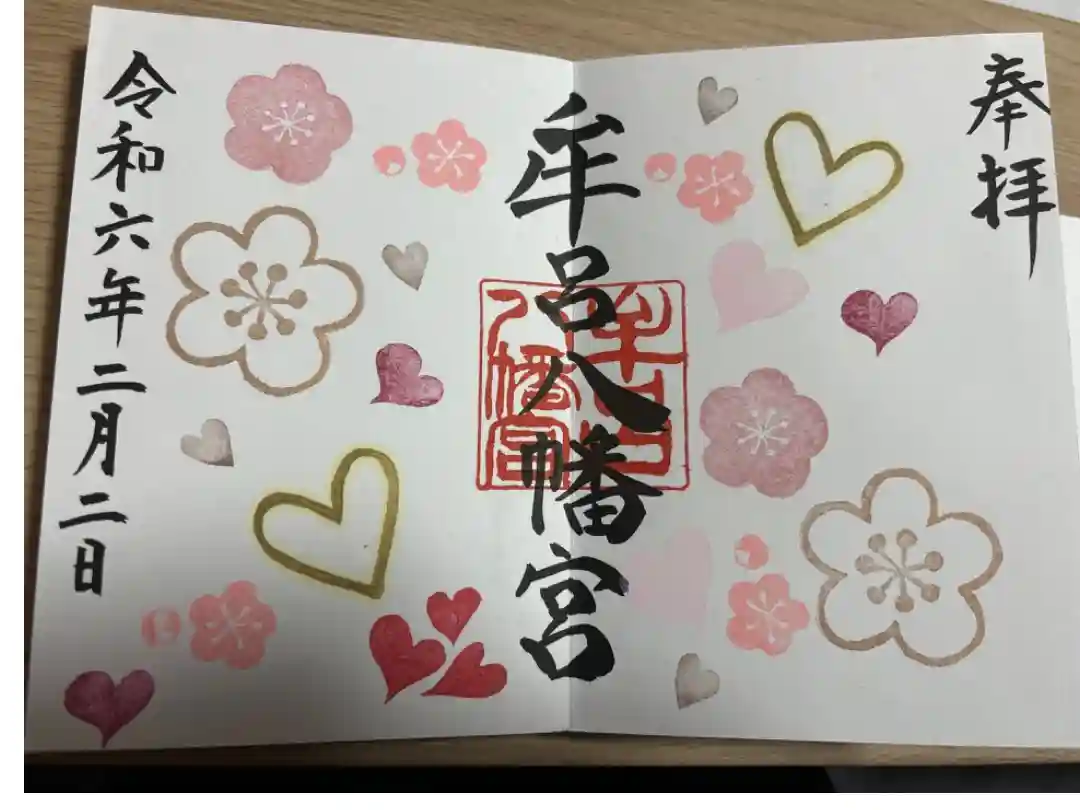 奉拝
牟呂八幡宮
牟呂八幡宮
令和六年二月二日